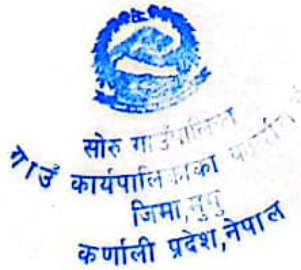 सोरु गाउँपालिका
गाउँ कार्यपालिकाका
जिमा,मुगु
कर्णाली प्रदेश,नेपाल